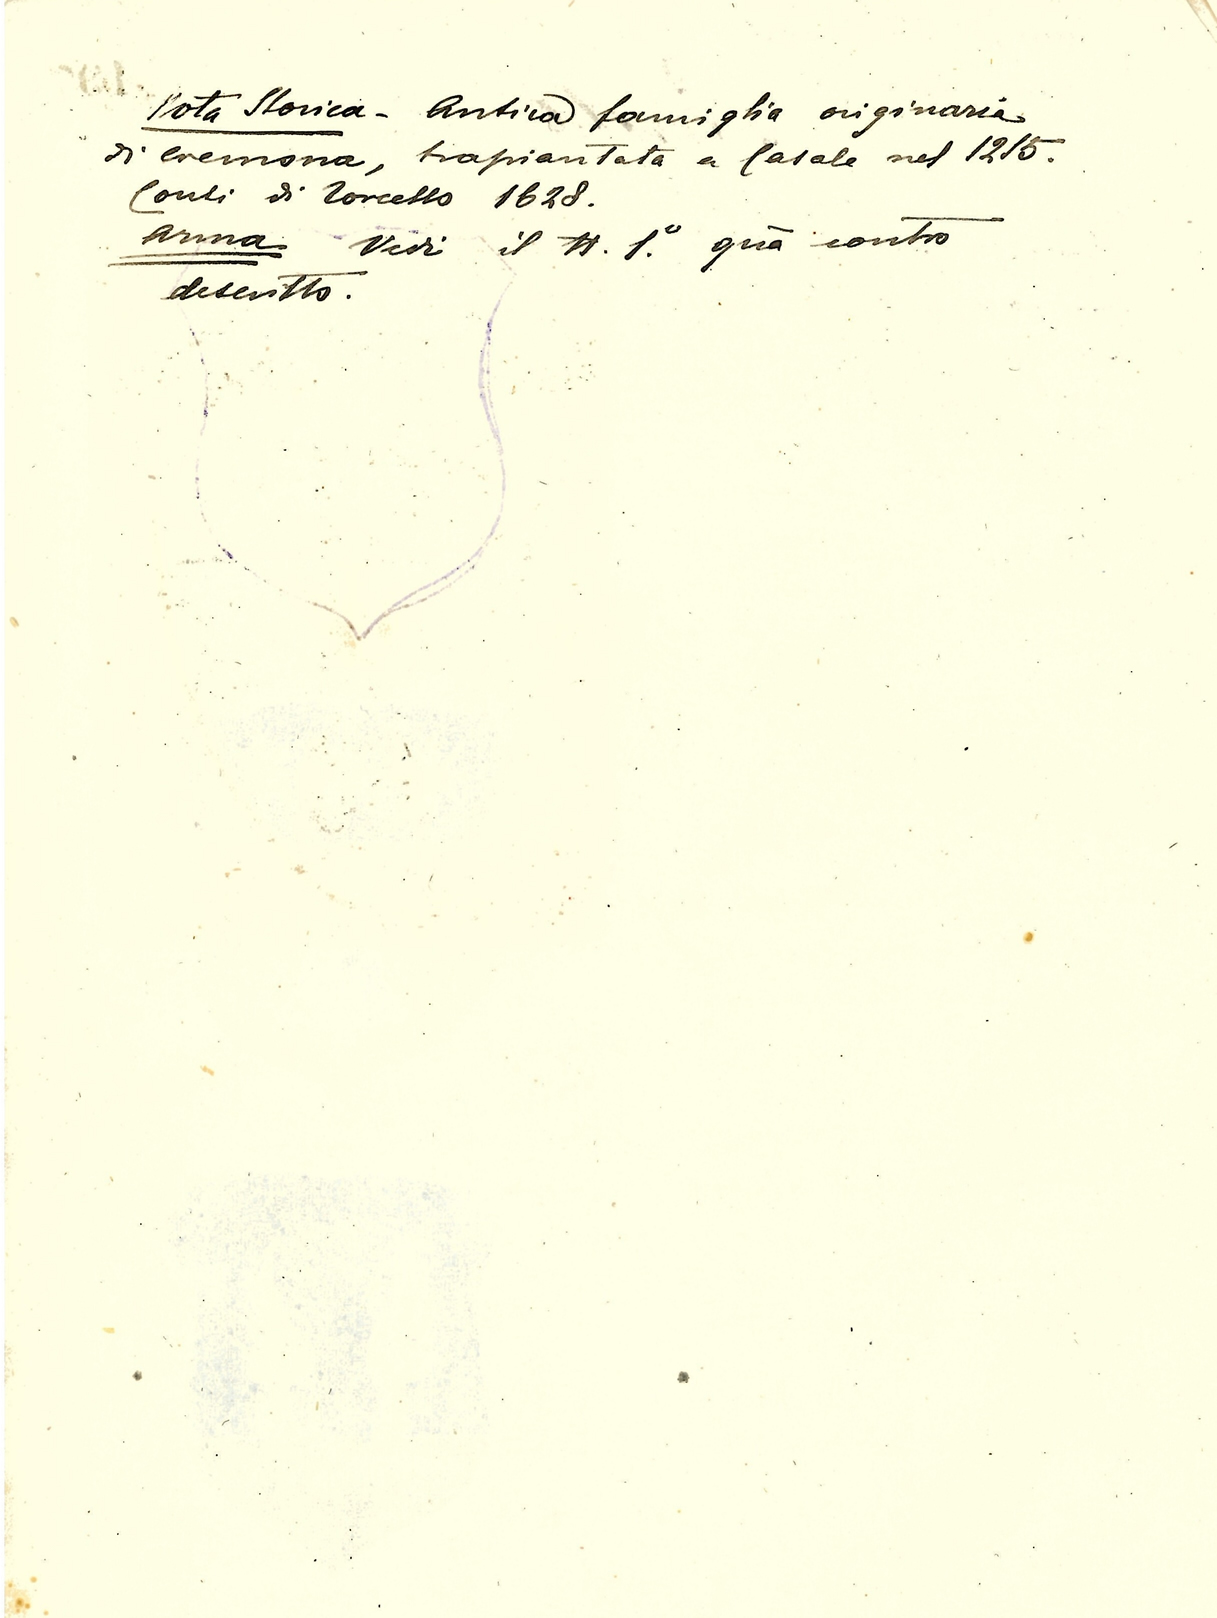 Nota Storica - Antica famiglia originaria
di Cremona, trapiantata a Casale nel 1215.
Conti di Torcello 1628.
Arma Vedi il N. 1.° quà contro
descritto.